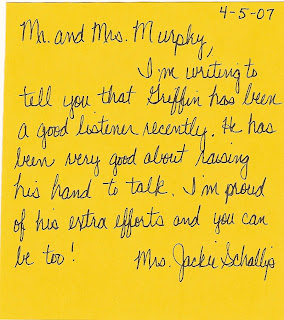 4-5-07
Mr. and Mrs. Murphy,
I'm writing to
tell you that Griffin has been
a good listener recently. He has
been very good about raising
his hand to talk. I'm proud
of his extra efforts and you can
be too!
Mrs. Jackie Schallip